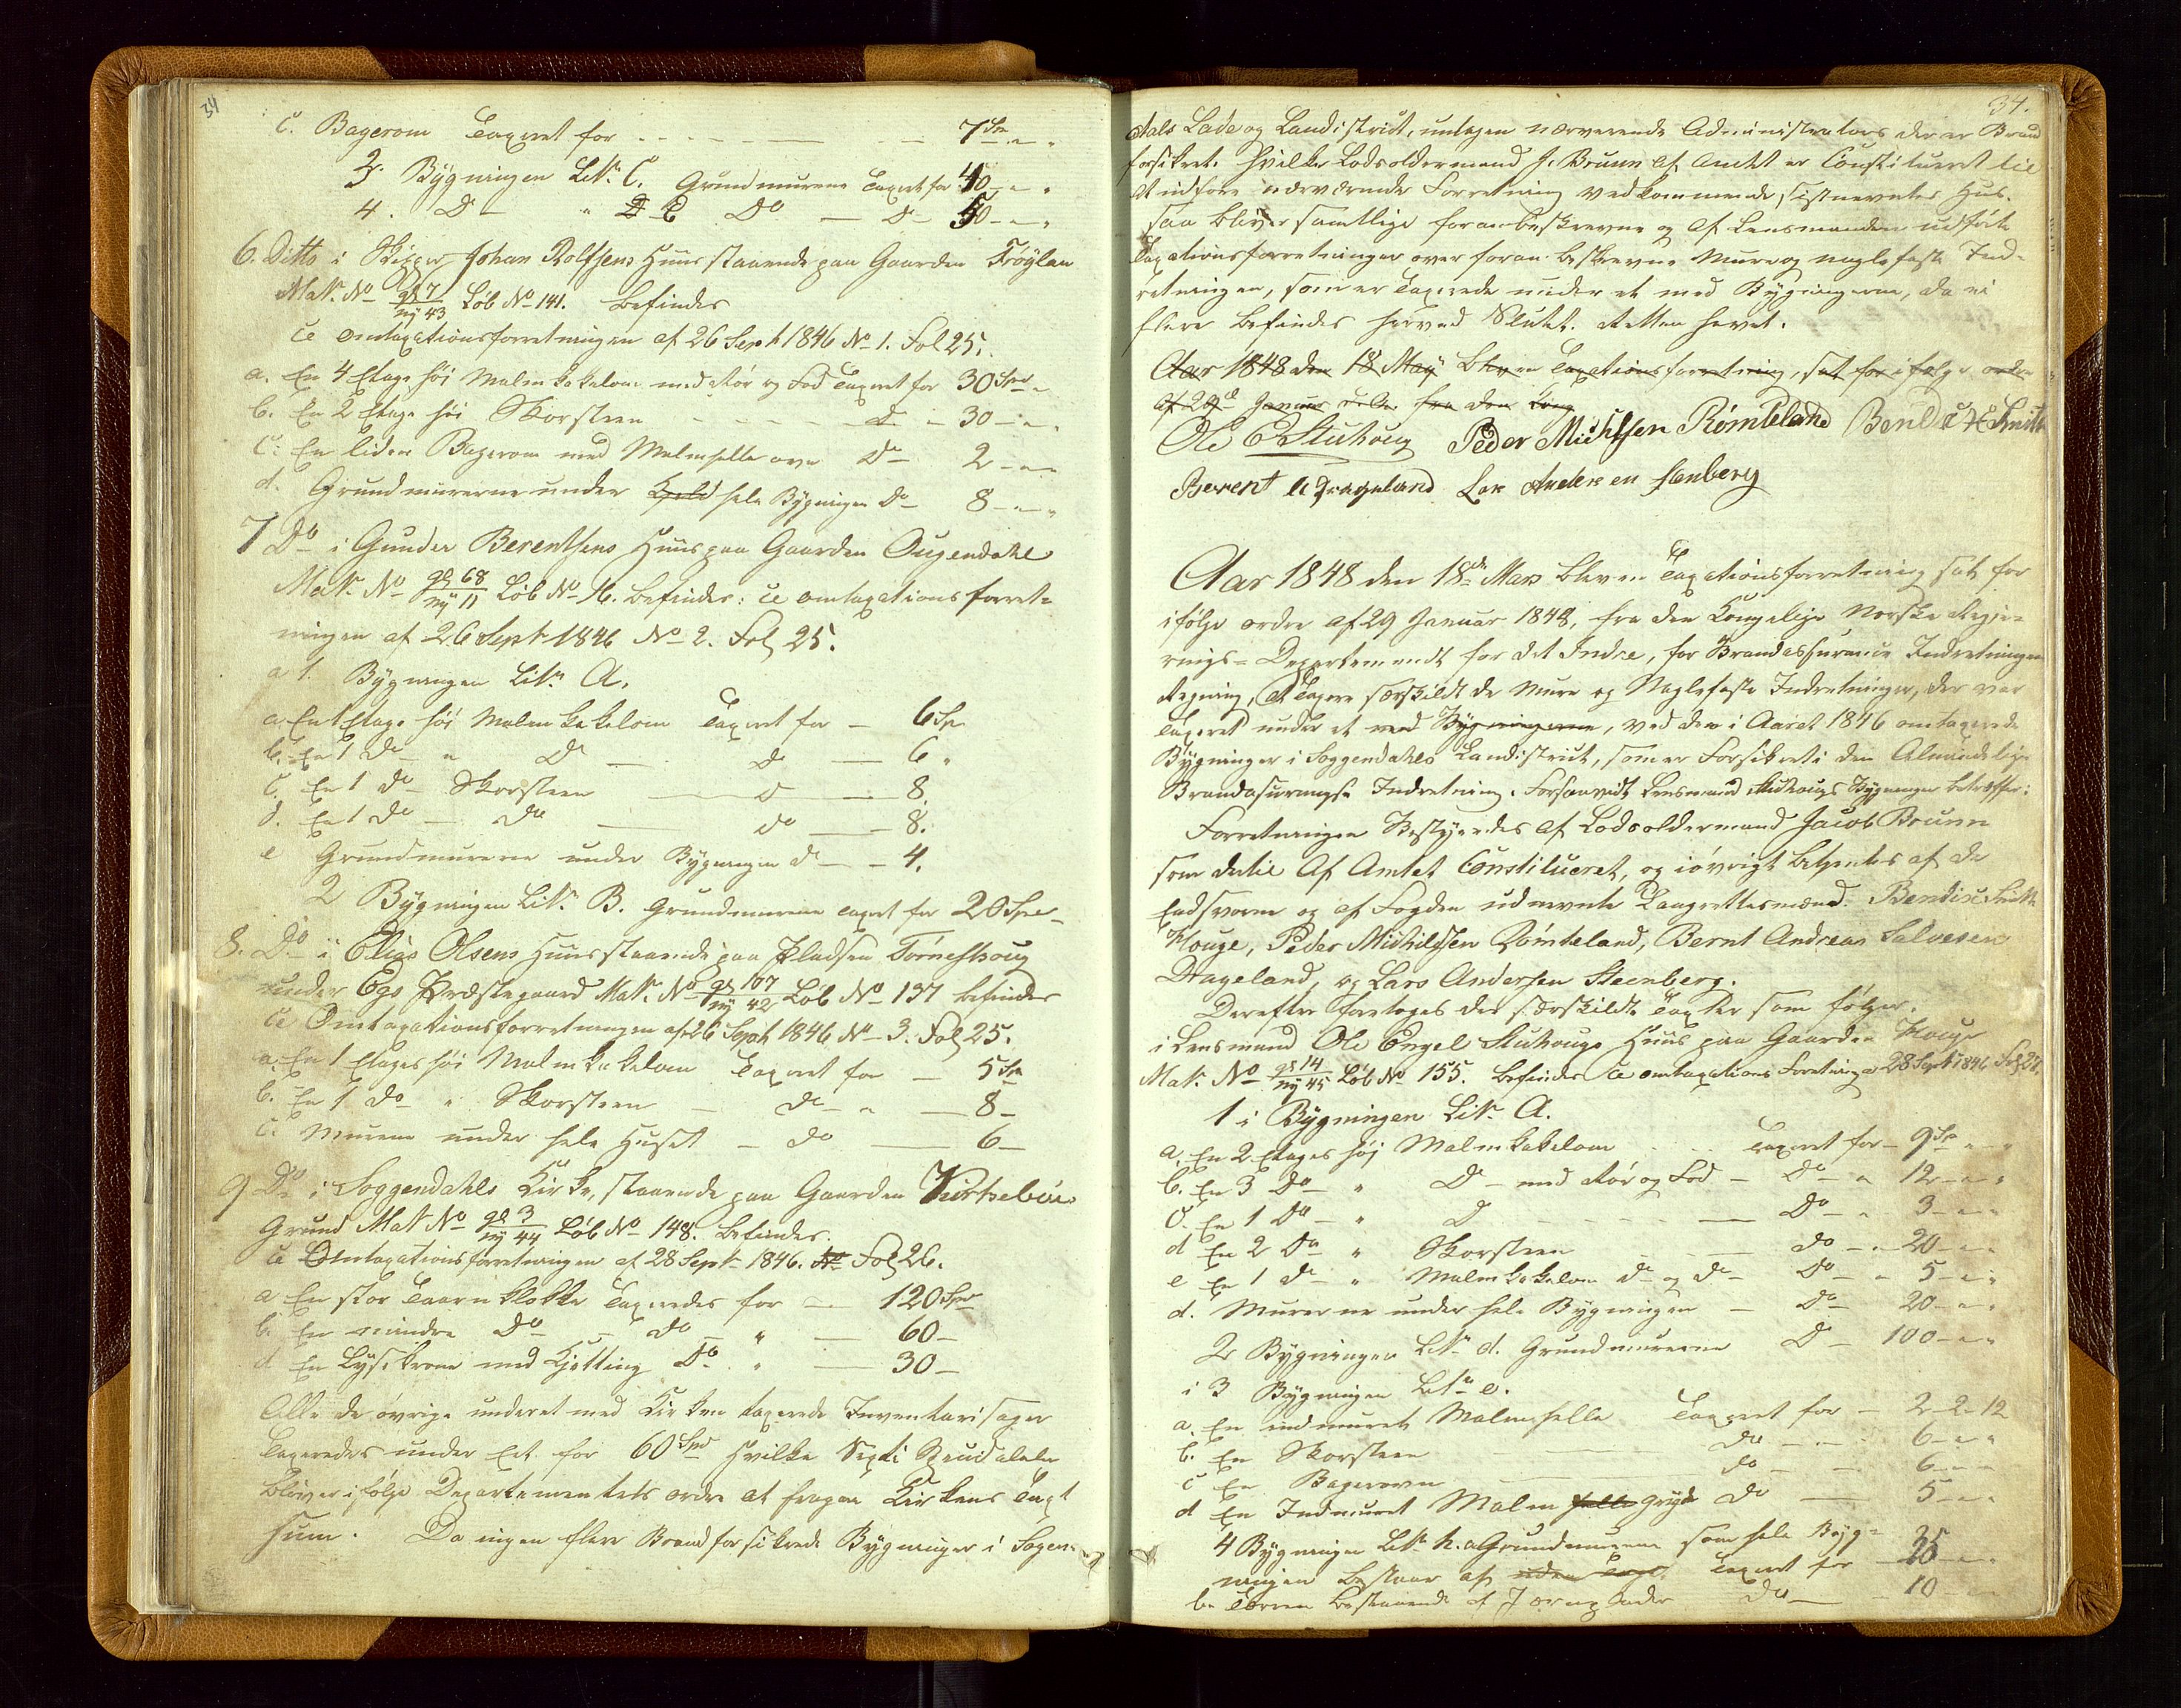 34
c. Bagerovn Taxeret for - - - - 7 Spd " "
3. Bygningen Litr. C. Grundmurene Taxeret for 40 - " "
4. Do - " E Do - Do - 50 - " "
6. Ditto i Skipper Johan Rolfsens Huus staaende paa Gaarden Frøylan
Mat. No gl 7 / ny 43 Løb No 141. befindes
ce Omtaxationsforretningen af 26 Sept 1846 No 1. Fol 25.
a. En 4 Etage høi Malm Kakelovn med Rør og Fod Taxeret for 30 Spd "
b. En 2 Etage høi Skorsteen - - - - Do - 30 - " "
c. En liden Bagerovn med Malmhelle ovn Do - 2 - " "
d. Grundmurerne under hele Bygningen Do - 8 - " "
7 Do i Gunder Berentsens Huus paa Gaarden Ougendahl
Mat. No gl 68 / ny 11 Løb No 16. befindes: ce omtaxationsforret-
ningen af 26 Sept 1846 No 2. Fol 25.
a 1. Bygningen Litr. A.
a. En 1 Etage høi Malm Kakelovn Taxeret for - 6 Spd
b. En 1 Do - " Do - Do - 6 "
c. En 1 do - Skorsteen - do - 8.
d. En 1 Do - Do - do - 8.
e Grundmurerne under Bygningen do - 4.
2 Bygningen Litr. B. Grundmurene taxeret for 20 Spd -
8. Do i Elias Olsens Huus staaende paa Pladsen Tørneshoug
under Egs Præstegaard Mat. No gl 107 / ny 42 Løb No 137 befindes
ce Omtaxationsforretningen af 26 Sept 1846 No 3. Fol 25.
a. En 1 Etages høi Malm Kakelovn Taxeret for - 5 Spd
b. En 1 do " Skorsteen - do - " - 8 -
c. Murene under hele Huset - do - 6 -
9 Do i Soggendahls Kirke, staaende paa Gaarden Kirkebøes
Grund Mat No gl 3 / ny 44 Løb No 148. befindes.
ce Omtaxationsforretningen af 28 Sept 1846. No Fol 26.
a En stor Taarn klokke Taxeredes for - 120 Spd
b. En mindre Do - do - " - 60 -
d. En Lysekrone med Kjetting Do " - 30 -
Alle de øvrige under et med Kirken taxerede Inventarisager
taxeredes under Eet for 60 Spd Hvilke Sexti Speciedaler
bliver ifølge Departementets ordre at fragaa Kirkens Taxt
sum. Da ingen flere Brandforsikrede Bygninger i Sogen-
34.
dals Lade og Landistrict, undtagen nærværende Administrators der er Brand
forsikret. Hvilke Lodsoldermand J. Bruun af Amtet er Constitueret til
at udføre nærværende Forretning vedkommende sistnevntes Hus.
saa bliver samtlige foranbeskrevne og af Lensmanden udførte
Taxationsforretninger over foran beskrevne Mure og naglefaste Ind-
retninger, som er Taxerede under et med Bygningerne, da ei
flere befindes herved Sluttet. Retten hævet.
Aar 1848 den 18 May blev en Taxationsforretning, sat for ifølge ordre
af 29de Januar d. A. fra den Kong
Ole E Stuhoug Peder Michelsen Rømteland Bendix H Knuth
Berent A Drageland Lars Andersen Stenberg
Aar 1848 den 18de Mars blev en Taxationsforretning sat for
ifølge ordre af 29 Januar 1848, fra den Kongelige Norske Regje-
rings-Departement for det Indre, for Brandassurance Indretningens
Regning, at taxere særskildt de Mure og Naglefaste Indretninger, der var
Taxeret under et med Bygningerne, ved den i Aaret 1846 omtaxerede
Bygninger i Soggendahls Landistrict, som er Forsikret i den Almindelige
Brandasurangse Indretning. Forsaavidt Lensmand Stuhougs Bygninger betræffer:
Forretningen Bestyredes af Lodsoldermand Jacob Bruun
som dertil Af Amtet Constitueret, og iøvrigt betjentes af de
Eedsvorne og af Fogden udnevnte Laugrettesmænd. Bendix Knuth
Houge, Peder Michelsen Rømteland, Bernt Andreas Salvesen
Drageland, og Lars Andersen Steenberg.
Derefter foretoges den særskildte Taxter som følger.
i Lensmand Ole Engel Stuhougs Huus paa Gaarden Houge
Mat. No gl 14 / ny 45 Løb No 155. befindes ce omtaxations Forretningen 28 Sept 1846 Fol 27.
1 i Bygningen Litr. A.
a. En 2 Etages høj Malmkakelovn - - Taxeret for - 9 Sp " "
b. En 3 Do - " Do - med Rør og Fod - Do - " 12 - " "
c. En 1 Do - " D - - - - Do - " 3 - " "
d En 2 Do " Skorsteen - - do - " 20 - " "
e En 1 do - " Malm kakelovn do og do - Do - " 5 - " "
d. Murerne under hele Bygningen - Do - 20 - " "
2 Bygningen Litr. d. Grundmurerne Do - 100 - " "
i 3 Bygningen Litr. e.
a. En indmuret Malmhelle Taxeret for - 2 - 2 - 12
b. En Skorsteen - do - - - 6 - " "
c En Bagerovn - do - - 6 - " "
d En Indmuret Malm helle gryde Do - 5 - " "
4 Bygningen Litr. h. a Grundmurene som hele Byg-
ningen bestaar af Taxeret for 25 - " "
b. bestaaende af do - 10